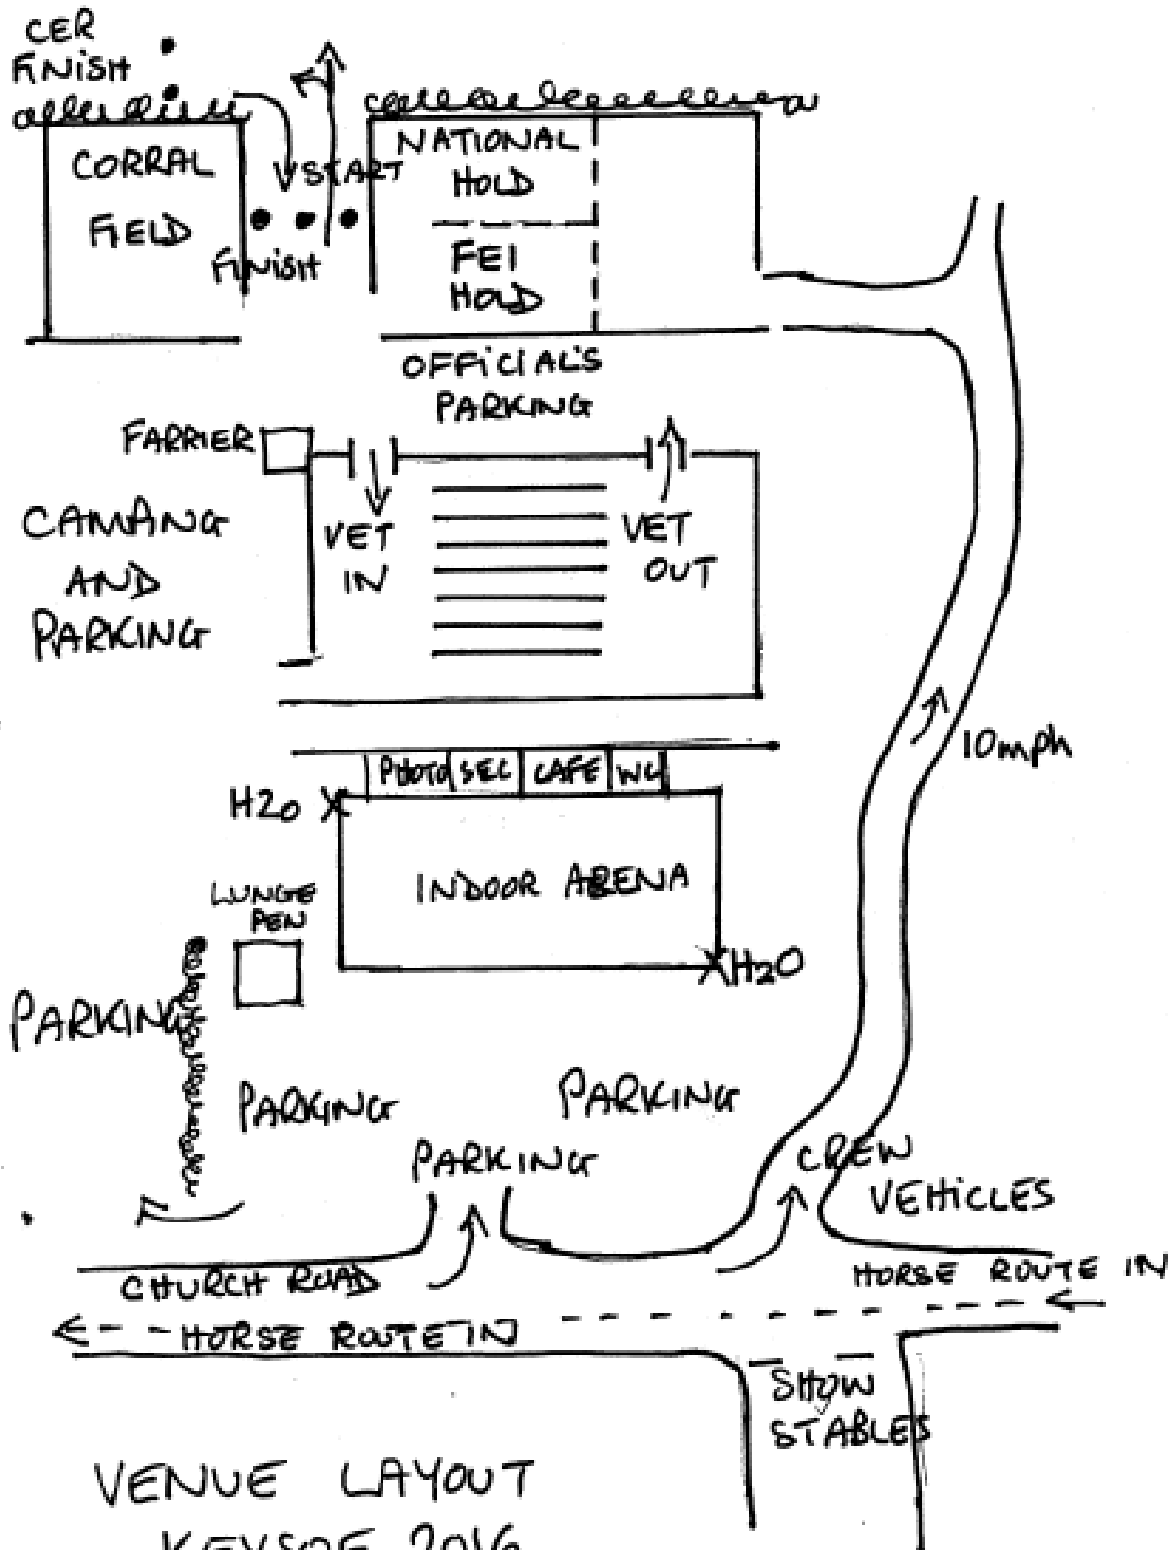 CER
FINISH
CORRAL
FIELD
START
FINISH
NATIONAL
HOLD
FEI
HOLD
OFFICIAL'S
PARKING
FARRIER
VET
IN
VET
OUT
CAMPING
AND
PARKING
10mph
PHOTO SEC CAFE WC
H2O
INDOOR ARENA
LUNGE
PEN
H2O
PARKING
PARKING
PARKING
PARKING
CREW
VEHICLES
CHURCH ROAD
HORSE ROUTE IN
HORSE ROUTE IN
SHOW
STABLES
VENUE LAYOUT
KEYSOE 2016